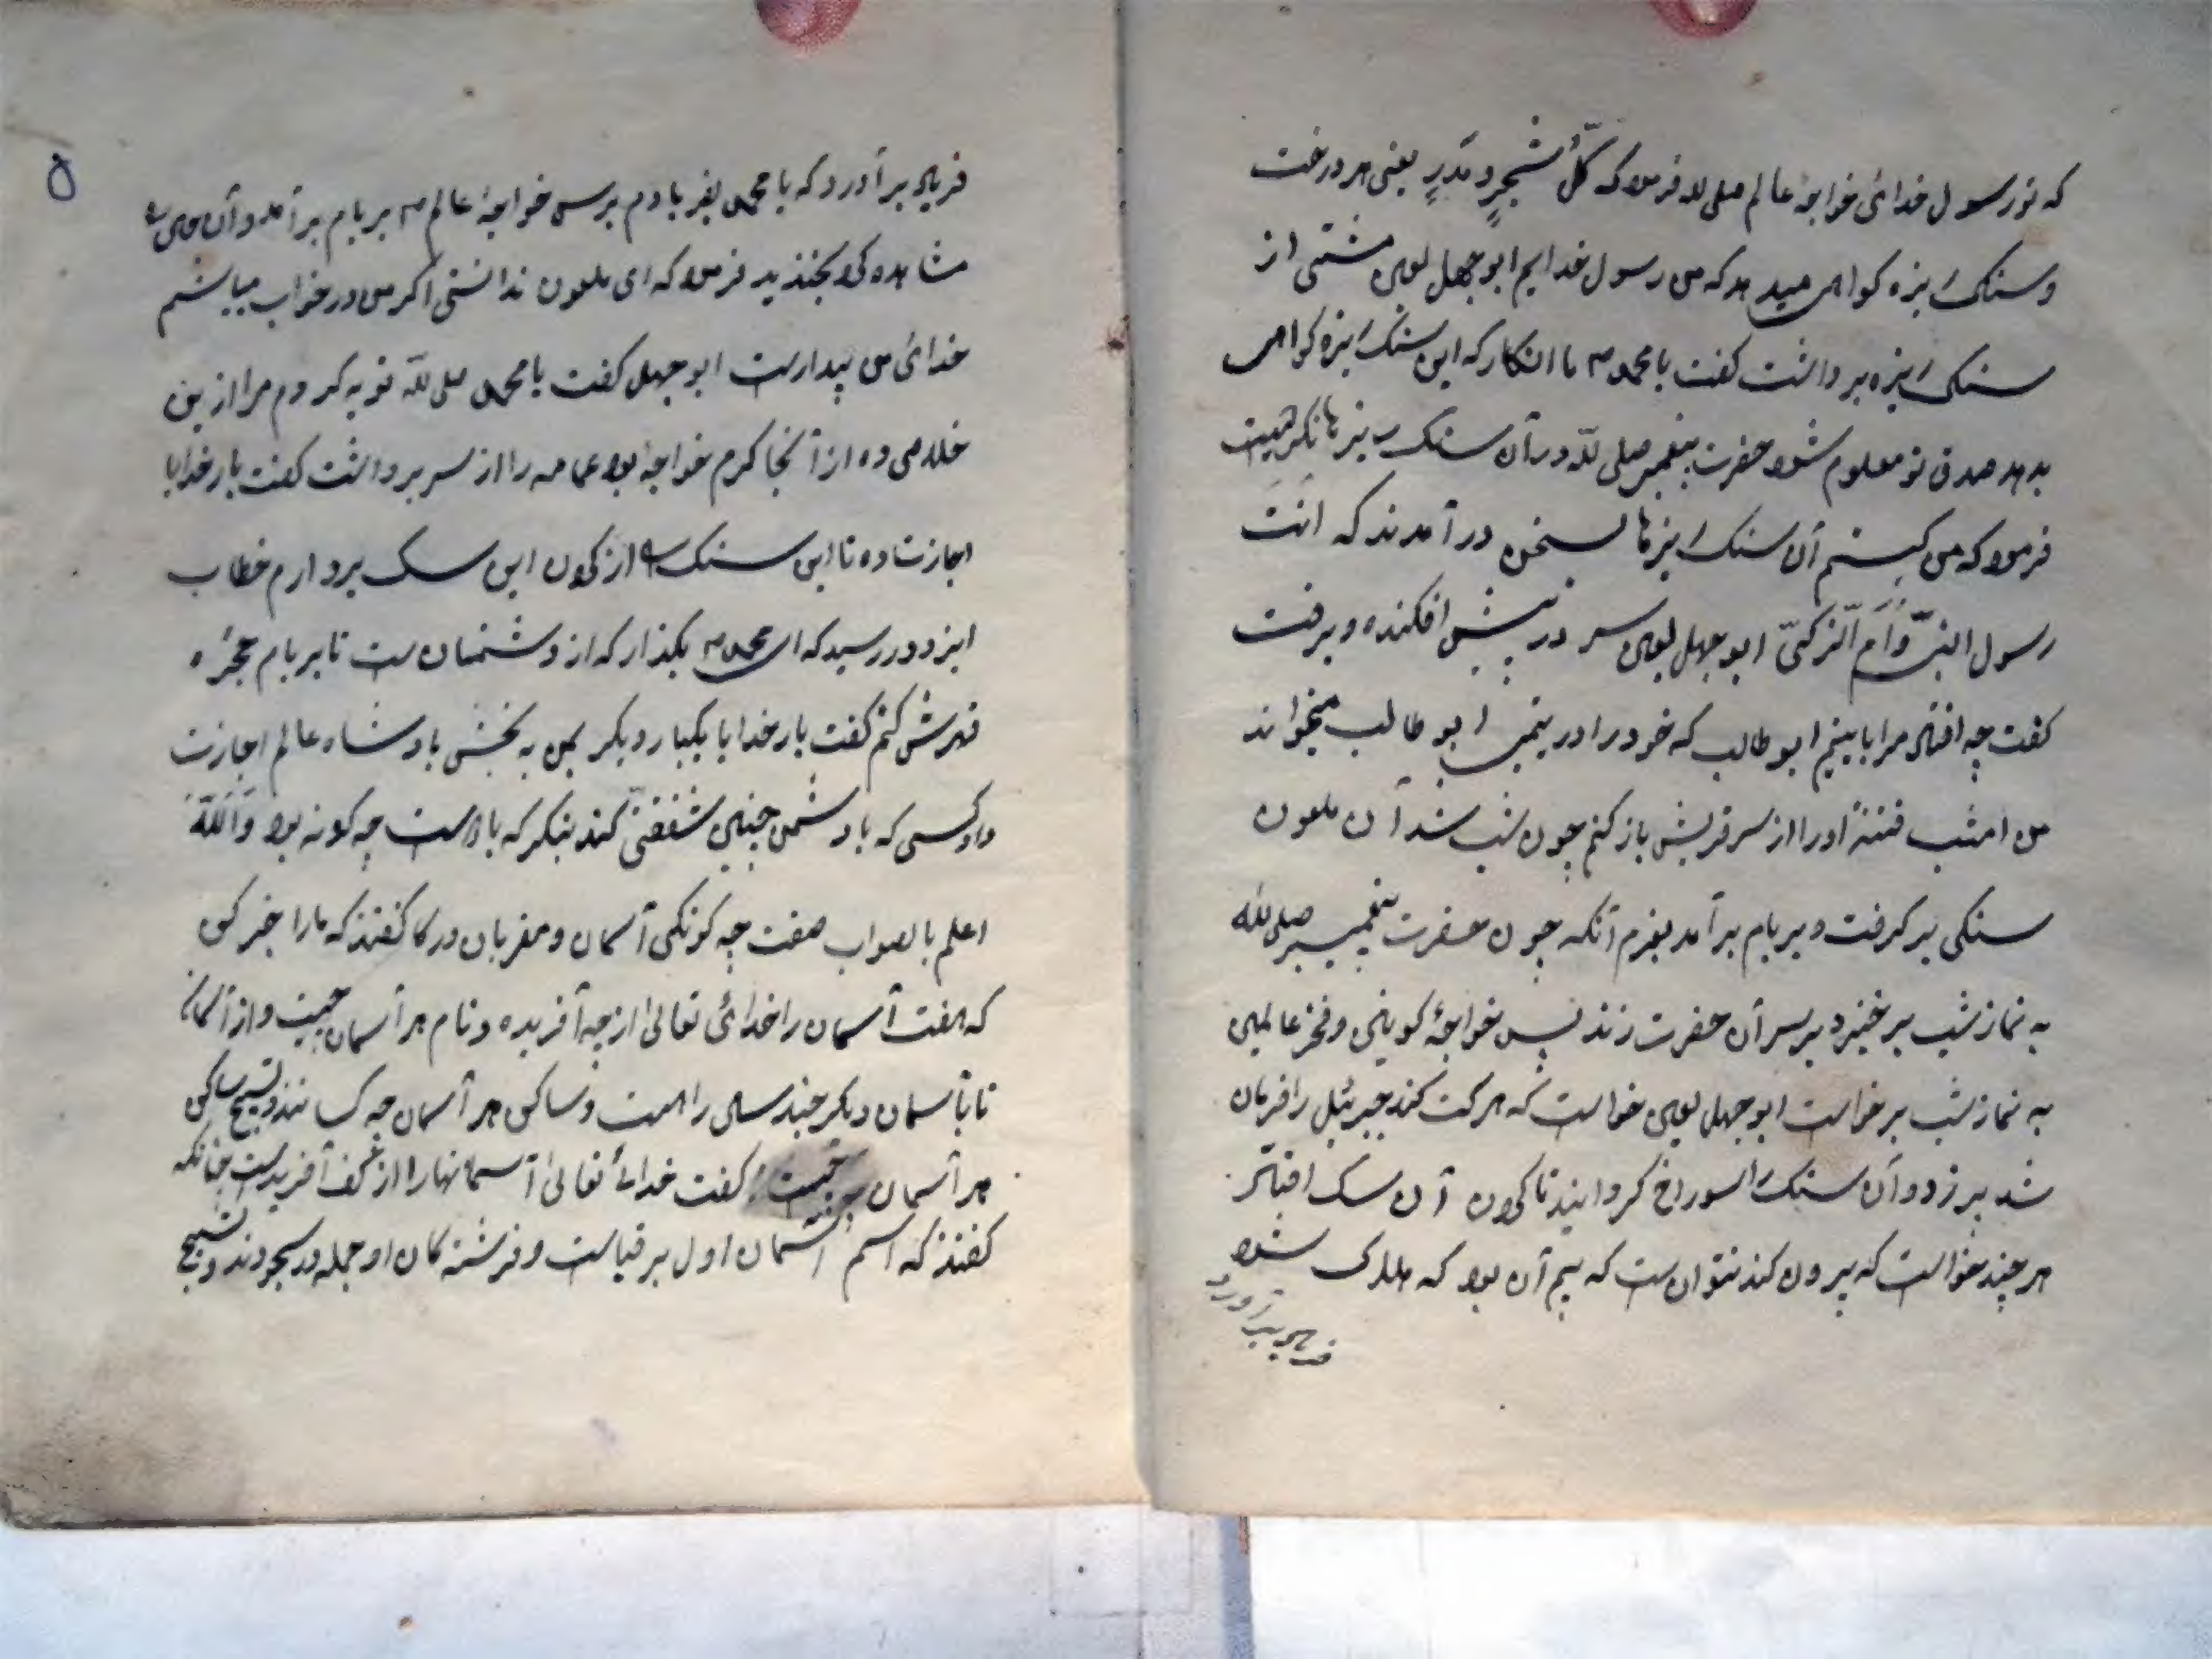 که تو رسول خدائی خواجۀ عالم صلی الله فرمود که کلُّ شجرٍ و مَدَرٍ یعنی هر درخت
و سنک ریزه کواهی میدهد که من رسول خدایم ابوجهل لعین مشتی از
سنک ریزه برداشت کفت یا محمد م ما انکار که این سنک ریزه کواهی
بدهد صدق تو معلوم شود حضرت پیغمبر صلی لله در آن سنک ریزها نکریست
فرمود که من کیستم آن سنک ریزها بسخن در آمدند که انتَ
رسول ابوجهل لعین سر در پیش افکنده و برفت
کفت چه افتاد مرا با یتیم ابوطالب که خود را در یتیم ابو طالب میخواند
من امشب فتنۀ او را از سر قریش باز کنم چون شب شد آن ملعون
سنکی بر کرفت و بر بام بر آمد بعزم آنکه چون حضرت پیغمبر صلی لله
به نماز شب بر خیزد بر سر آن حضرت زند پس خواجۀ کونین و فخر عالمین
به نماز شب برخواست ابوجهل لعین خواست که حرکت کند جبرئیل را فرمان
شد پر زد و آن سنک را سوراخ کردانید تا کردن آن سک افتاد
هر چند خواست که بیرون کند نتوانست که بیم آن بود که هلاک شود
فریاد برآورد
۵
فریاد بر آورد که یا محمد بفریادم برس خواجۀ عالم م بر بام بر آمد و آن حال
مشاهده کرد بخندید فرمود که ای ملعون ندانستی اکر من در خواب میباشم
خدائی من بیدارست ابوجهل کفت یا محمد صلی لله توبه کردم مرا ازین
خلاصی ده از آنجا کرم خواجه بود عمامه را از سر برداشت کفت بار خدایا
اجازت ده تا این سنک را از کردن این سک بردارم خطاب
ایزد در رسید که ای محمد م بکذار که از دشمنان ست تا بر بام حجره
قهرش کنم کفت بار خدایا یکبار دیکر بمن به بخش بادشاه عالم اجازت
داد کسی که با دشمن چنین شفقتی کند بنکر که با دوست چه کونه بود وَاللّه
اعلم بالصواب صفت چه کونکی آسمان و مقربان درکا کفتند که مارا خبر کن
که هفت آسمان را خدائی تعالیٰ از چه آفریده و نام هر آسمان چیست و از آسمان
تا بآسمان دیکر چند ساله راهست و ساکن هر آسمان چه کسانند و تسبیح ساکن
هر آسمان چیست کفت خدائے تعالیٰ آسمانها را از کف آفریدست چنانکه
کفتند که اسم آسمان اول برقیاست و فرشته کان او جمله در سجودند و تسبیح